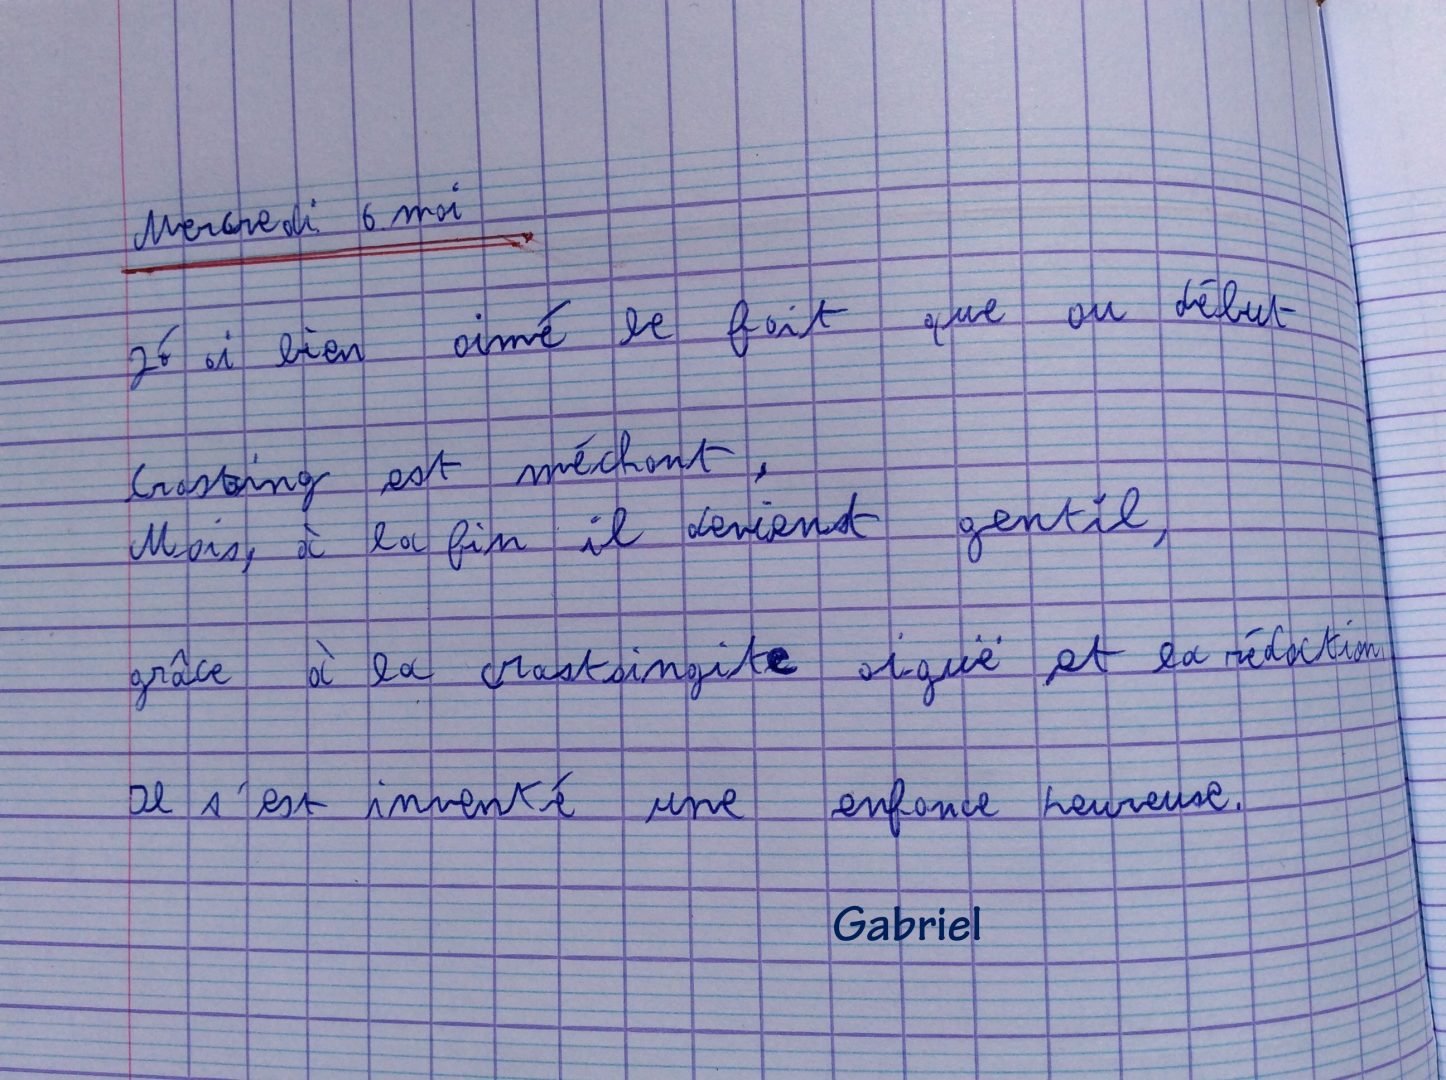 Mercredi 6 mai
Jé ai bien aimé le fait que au début
Crastaing est méchant,
Mais, à la fin il devient gentil,
grâce à la crastaingite aiguë et la rédaction
Il s'est inventé une enfance heureuse.
Gabriel